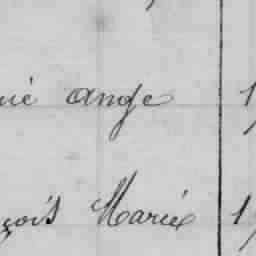 rié ange 1
çois Marie 1